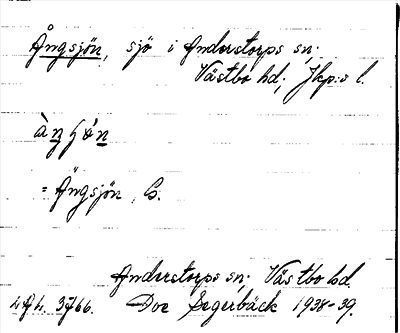 Ångsjön, sjö i Anderstorps sn;
Västbo hd; Jkp:s l.
= Ängsjön, G.
Anderstorps sn; Västbo hd.
Doc Segerbäck 1938-39.